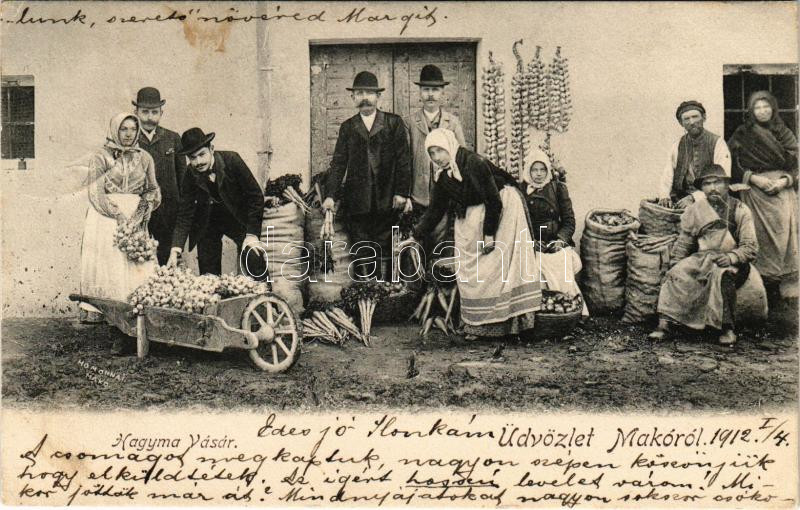 -lunk, szerető nővéred Margit.
darabanth.com
HOMONNAI
MAKÓ
Hagyma Vásár.
Üdvözlet Makóról. 1912 I/4.
Edes jó Ilonkám
A csomagot megkaptuk, nagyon szépen köszönjük
hogy elküldtétek. Az igért hosszú levelet várom! Mi-
kor jöttök már át? Mindnyájatokat nagyon sokszor csóko-